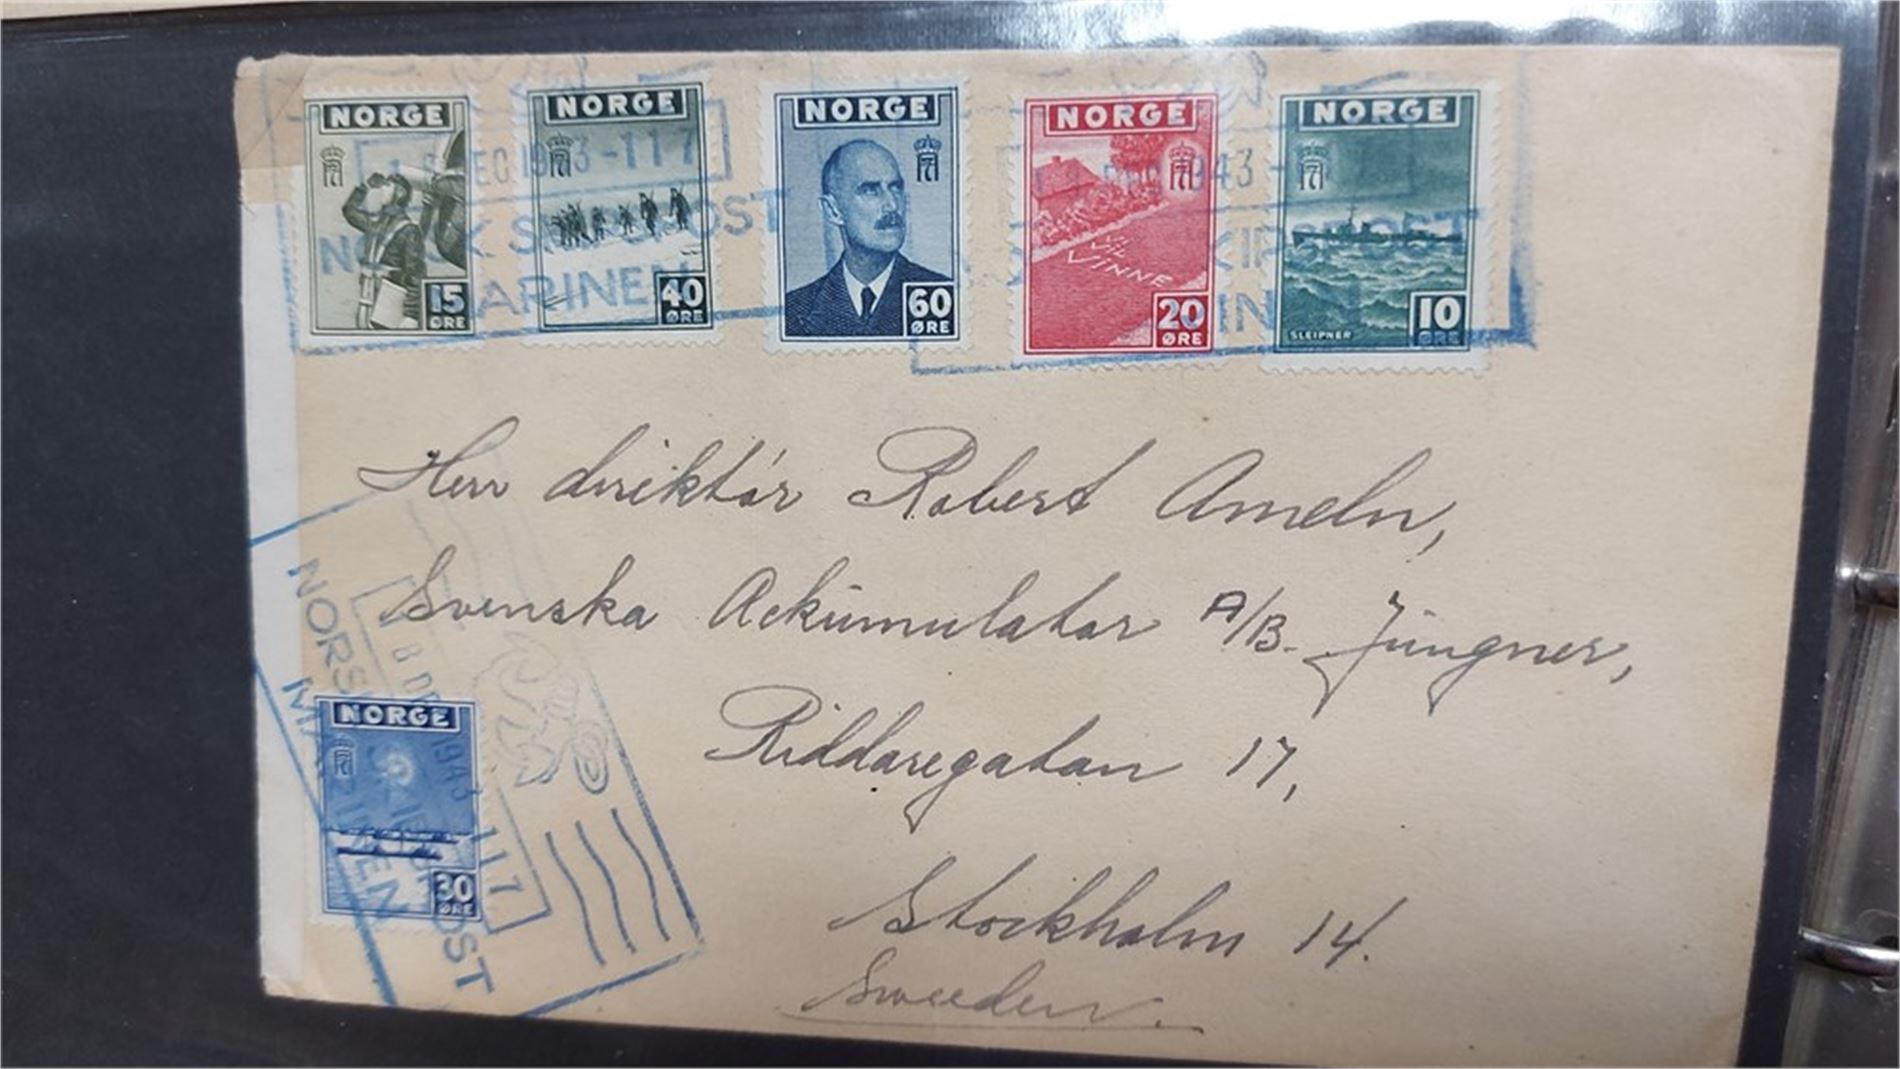 NORGE
15 ØRE
NORGE
40 ØRE
NORGE
60 ØRE
NORGE
VI VIL VINNE
20 ØRE
NORGE
SLEIPNER
10 ØRE
1943-117
NORSK SKIPSPOST
MARINEN
Herr direktör Robert Ameln,
Svenska Ackumulator A/B. Jüngner,
Riddaregatan 17,
Stockholm 14.
Sweden.
NORGE
30 ØRE
1943 117
NORSK SKIPSPOST
MARINEN